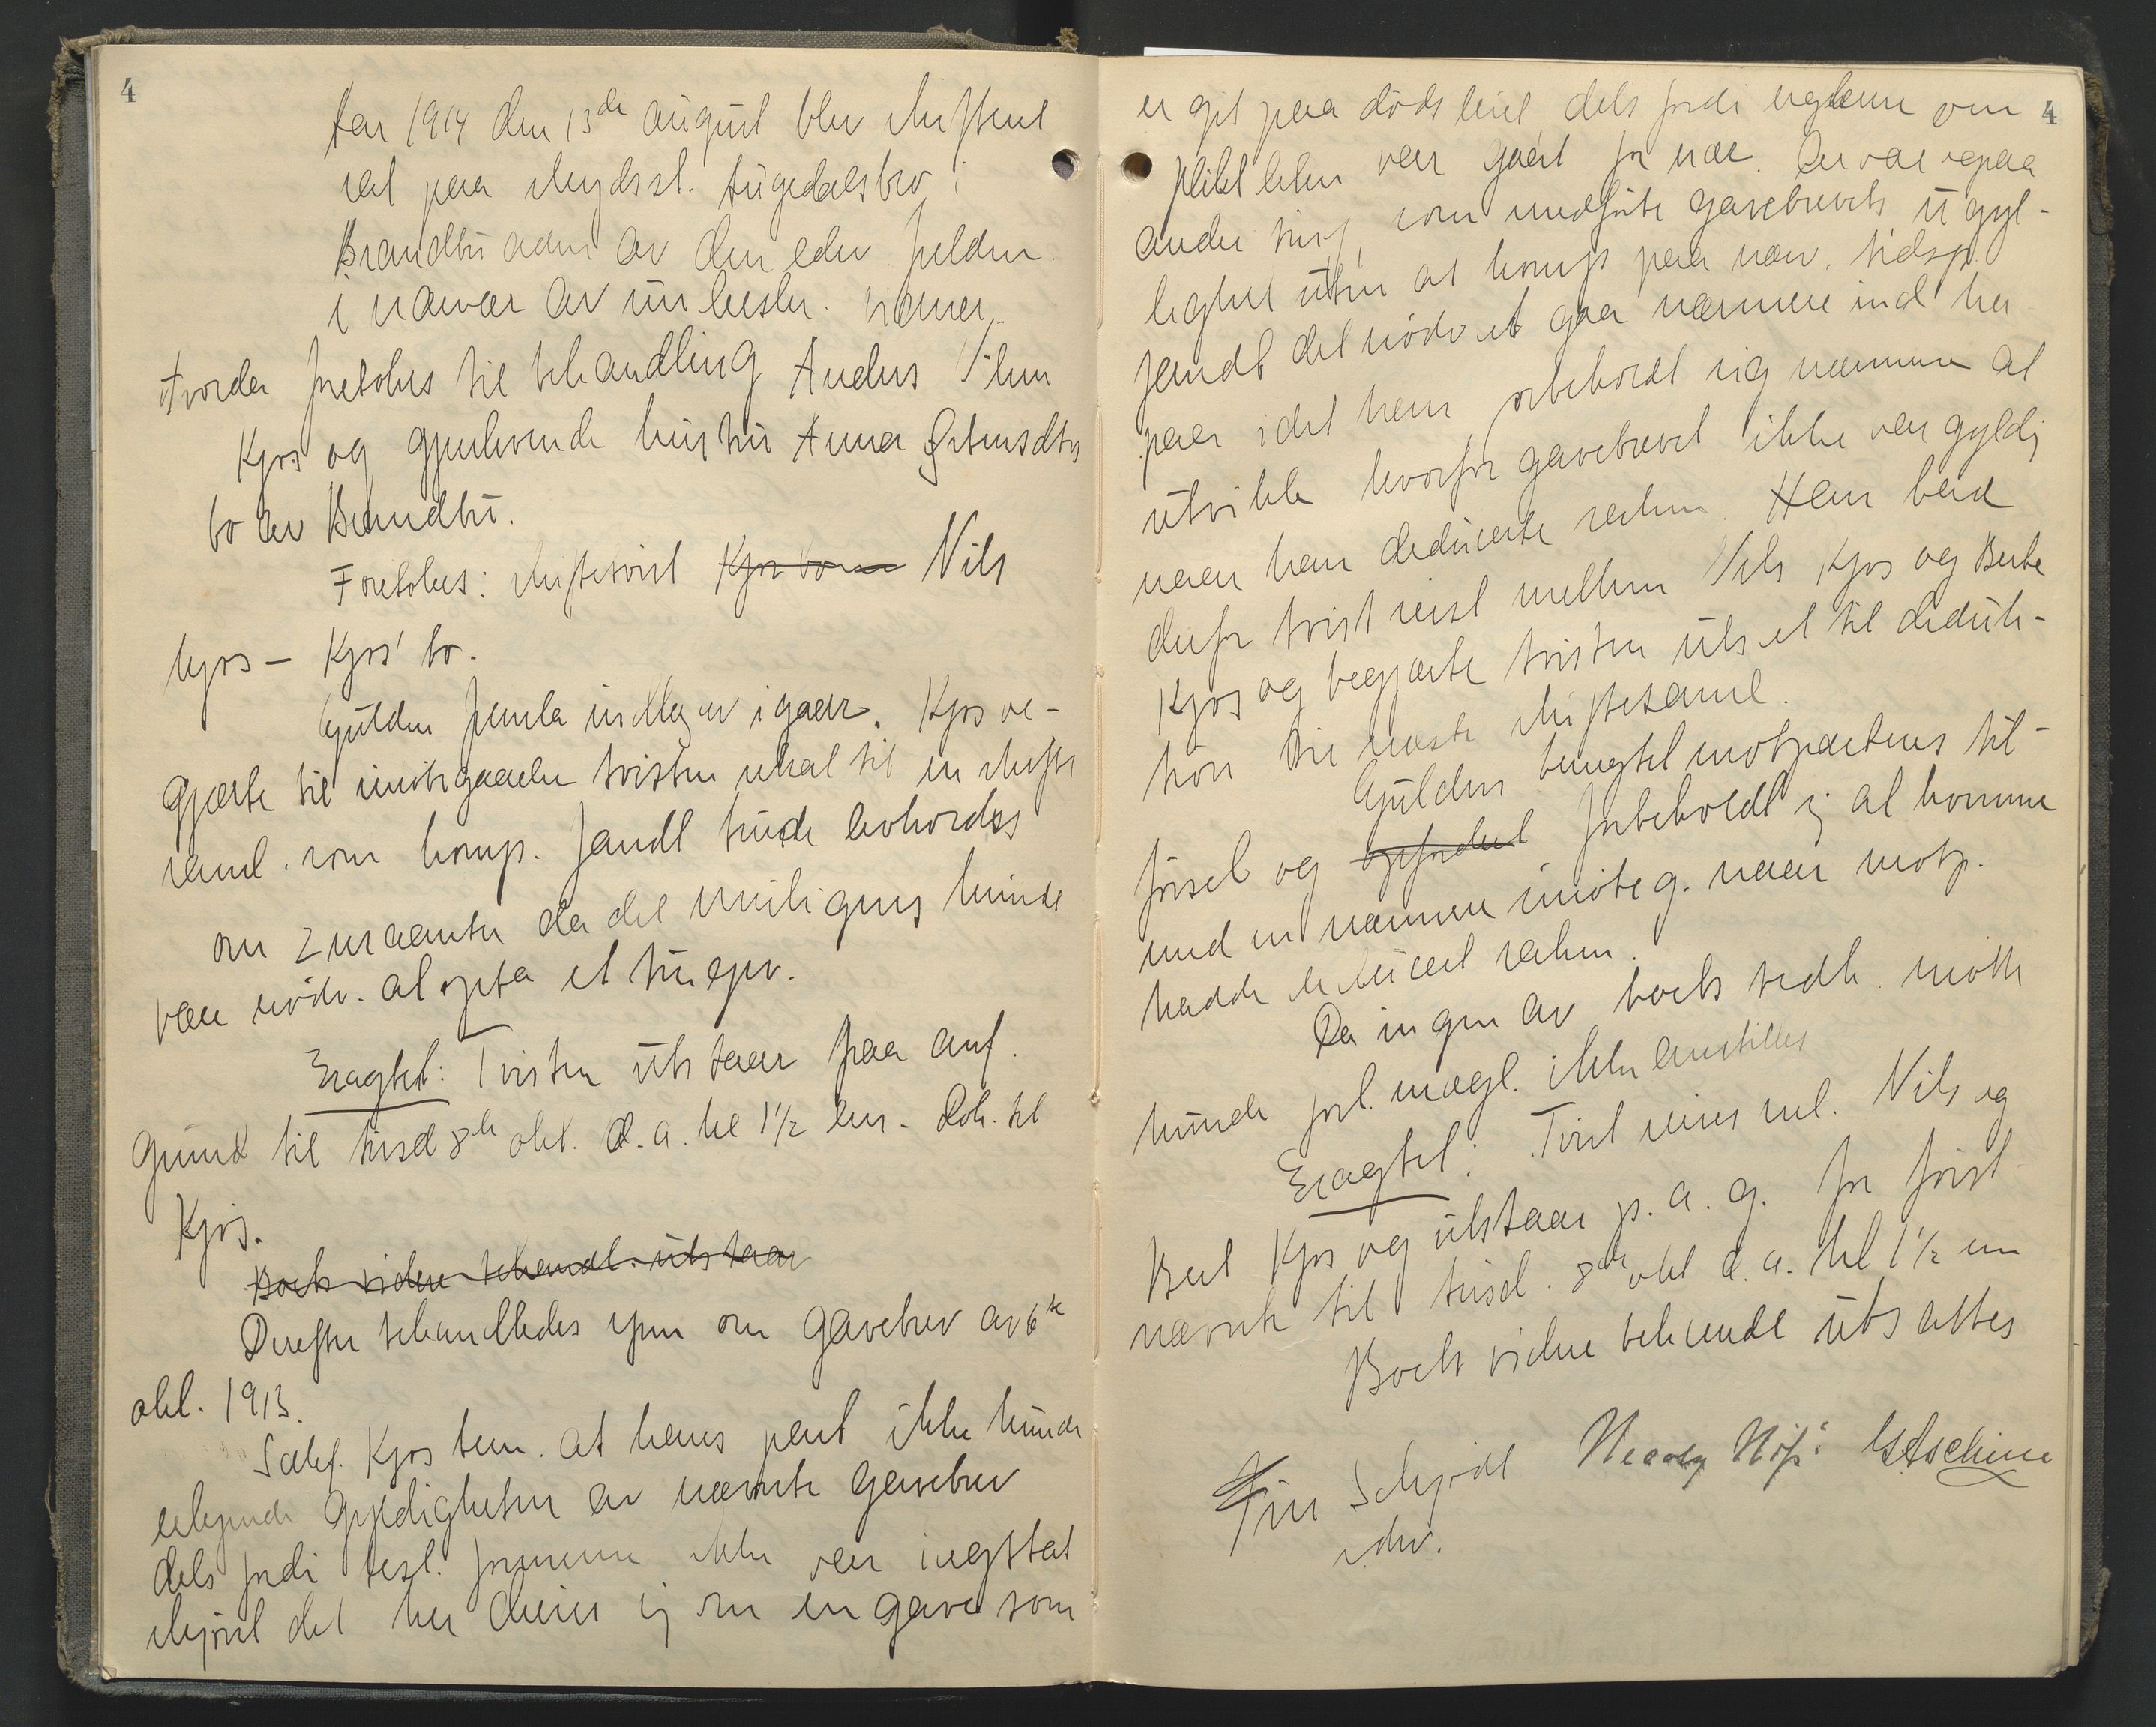 4
Aar 1914 den 13de august blev skiftens
ret paa skydsst. Augedalsbro i
Brandbu adm av den edsv. fuldm.
i nærvær av undertegn. vidner
Hvorda foretokes til behandling Anders Nilsen
Kjos og gjenlevende hustru Anna Østensdtrs
bo av Brandbu.
Foretokes: skiftetvist Nils
Kjos – Kjos' bo.
Gulden fremla indlæg av igaar. Kjos be-
gjærte til imøtegaaelse tvisten utsat til en skifte
saml. som komp. fandt burde avholdes
om 2 maaneder da det muligens kunde
være nødv. at opta et tingsv.
Eragtet: Tvisten utstaar paa anf.
grund til tirsd 8de okt. d.a. kl 1½ em. Dok. til
Kjos.
Boets videre behandl. utstaar
Derefter behandledes spm om gavebrev av 6te
okt. 1913.
Sakf. Kjos bem. at hans part ikke kunde
erkjende gyldigheten av nævnte gavebrev
dels fordi test. formerne ikke var iagttat
skjønt det her dreier sig om en gave som
4
er git paa dødsleiet dels fordi reglerne om
pliktdelen var gaaet for nær. Der var ogsaa
andre ting, som medførte gavebrevets ugyl-
dighet uten at komp paa nærv. tidsp.
fandt det nødv at gaa nærmere ind her
paa idet han forbeholdt sig nærmere at
utvikle hvorfor gavebrevet ikke var gyldig
naar han deducerte saken. Han bad
derfor tvist reist mellem Nils Kjos og Berte
Kjos og begjærte tvisten uts. et til deduk-
tion til næste skiftesaml.
Gulden benegtet motpartens til-
førsel og opfordret forbeholdt sig at komme
med en nærmere imøteg. naar motp.
hadde deduceret saken.
Da ingen av boets vedk. møtte
kunde forl. mægl. ikke anstilles
Eragtet: Tvist reises ml. Nils og
Bert Kjos og utstaar p. a. g. for først
nævnte til tirsd. 8de okt d.a. kl 1½ em
Boets videre behandl utsattes
Finn Schjødt
edsv.